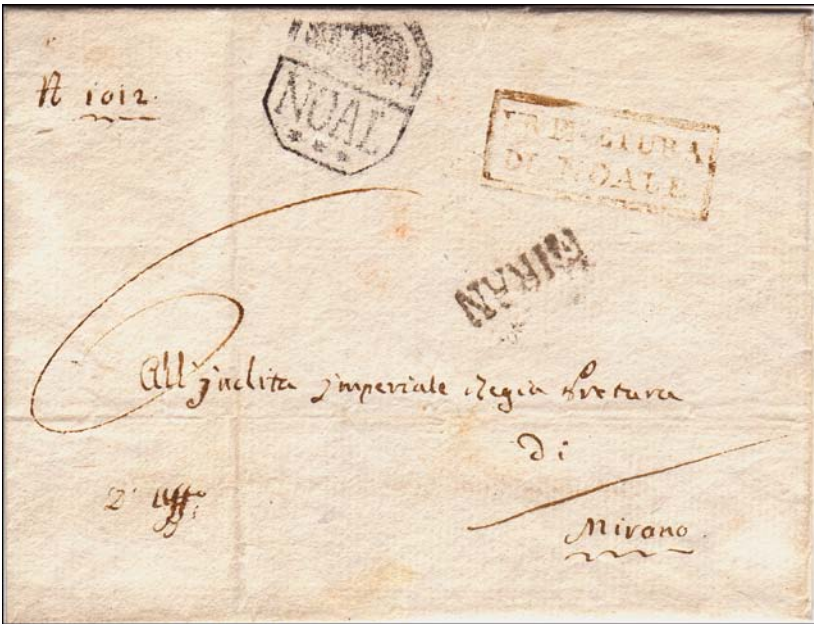 N 1012.
NOAL
PRETURA
DI NOALE
MIRAN
All'Inclita Imperiale Regia Pretura
di
Mirano.
D' Uff°: